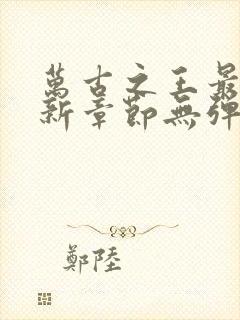 萬古之王最
新章節無彈
鄭陸